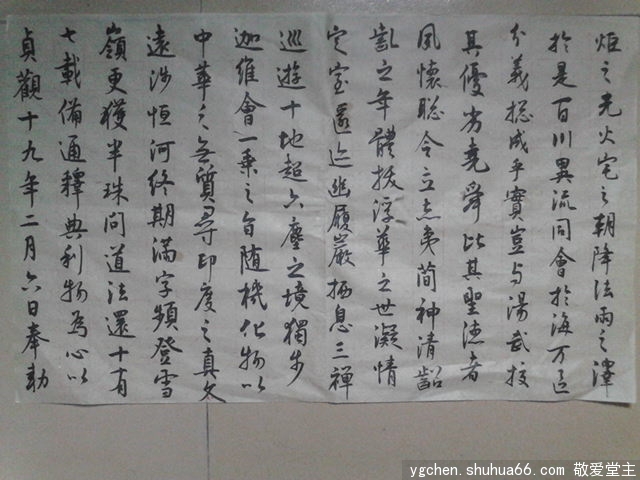 炬之光火宅之朝降法雨之澤
於是百川異流同會於海万區
分義揔成乎實豈与湯武挍
其優劣堯舜比其聖德者
夙懷聡令立志夷簡神清齠
齓之年體拔浮華之世凝情
定室匿迹幽履巖栖息三禪
巡遊十地超六塵之境獨步
迦維會一乗之旨随機化物以
中華之无質尋印度之真文
遠涉恒河終期滿字頻登雪
嶺更獲半珠問道法還十有
七載備通釋典利物為心以
貞觀十九年二月六日奉勅
ygchen.shuhua66.com 敬爱堂主